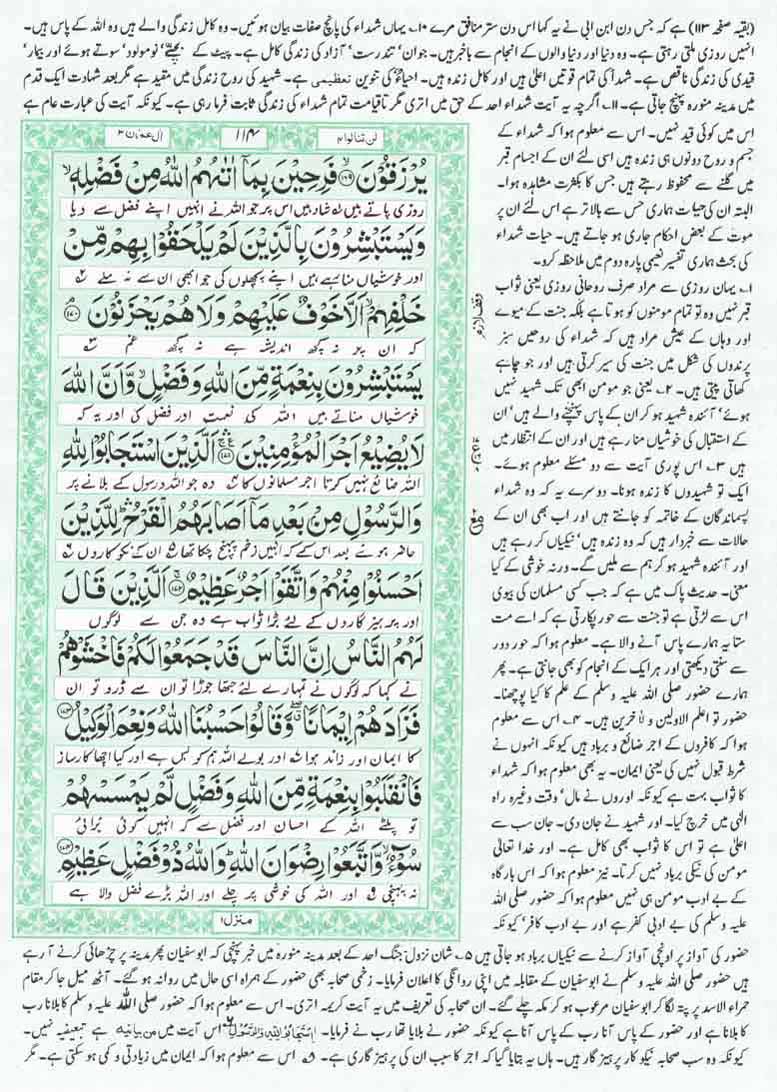 (بقیہ صفحہ ۱۱۳) ہے کہ جس دن ابن ابی نے یہ کہا اس دن ستر منافق مرے ۱۰۔ یہاں شہداء کی پانچ صفات بیان ہوئیں۔ وہ کامل زندگی والے ہیں وہ اللہ کے پاس ہیں۔
انہیں روزی ملتی رہتی ہے۔ وہ دنیا اور دنیا والوں کے انجام سے باخبر ہیں۔ جوان' تندرست' آزاد کی زندگی کامل ہے۔ پیٹ کے بچے' نومولود' سوتے ہوئے اور بیمار'
قیدی کی زندگی ناقص ہے۔ شہدا کی تمام قوتیں اعلیٰ ہیں اور کامل زندہ ہیں۔ احیاءٌ کی تنوین تعظیمی ہے۔ شہید کی روح زندگی میں مقید ہے مگر بعد شہادت ایک قدم
میں مدینہ منورہ پہنچ جاتی ہے۔ ۱۱۔ اگرچہ یہ آیت شہداء احد کے حق میں اتری مگر تاقیامت تمام شہداء کی زندگی ثابت فرما رہی ہے۔ کیونکہ آیت کی عبارت عام ہے
اس میں کوئی قید نہیں۔ اس سے معلوم ہوا کہ شہداء کے
جسم و روح دونوں ہی زندہ ہیں اسی لئے ان کے اجسام قبر
میں گلنے سے محفوظ رہتے ہیں جس کا بکثرت مشاہدہ ہوا۔
البتہ ان کی حیات ہماری حس سے بالاتر ہے اس لئے ان پر
موت کے بعض احکام جاری ہو جاتے ہیں۔ حیات شہداء
کی بحث ہماری تفسیر نعیمی پارہ دوم میں ملاحظہ کرو۔
۱۔ یہاں روزی سے مراد صرف روحانی روزی یعنی ثواب
قبر نہیں وہ تو تمام مومنوں کو ہوتا ہے بلکہ جنت کے میوے
اور وہاں کے عیش مراد ہیں کہ شہداء کی روحیں سبز
پرندوں کی شکل میں جنت کی سیر کرتی ہیں اور جو چاہے
کھاتی پیتی ہیں۔ ۲۔ یعنی جو مومن ابھی تک شہید نہیں
ہوئے' آئندہ شہید ہو کر ان کے پاس پہنچنے والے ہیں' ان
کے استقبال کی خوشیاں منا رہے ہیں اور ان کے انتظار میں
ہیں ۳۔ اس پوری آیت سے دو مسئلے معلوم ہوئے۔
ایک تو شہیدوں کا زندہ ہونا۔ دوسرے یہ کہ وہ شہداء
پسماندگان کے خاتمہ کو جانتے ہیں اور اب بھی ان کے
حالات سے خبردار ہیں کہ وہ زندہ ہیں' نیکیاں کر رہے ہیں
اور آئندہ شہید ہو کر ہم سے ملیں گے۔ ورنہ خوشی کے کیا
معنی۔ حدیث پاک میں ہے کہ جب کسی مسلمان کی بیوی
اس سے لڑتی ہے تو جنت سے حور پکارتی ہے کہ اسے مت
ستا یہ ہمارے پاس آنے والا ہے۔ معلوم ہوا کہ حور دور
سے سنتی دیکھتی اور ہر ایک کے انجام کو بھی جانتی ہے۔ پھر
ہمارے حضور صلی اللہ علیہ وسلم کے علم کا کیا پوچھنا۔
حضور تو اعلم الاولین و لآخرین ہیں۔ ۴۔ اس سے معلوم
ہوا کہ کافروں کے اجر ضائع و برباد ہیں کیونکہ انہوں نے
شرط قبول نہیں کی یعنی ایمان۔ یہ بھی معلوم ہوا کہ شہداء
کا ثواب بہت ہے کیونکہ اوروں نے مال' وقت وغیرہ راہ
الٰہی میں خرچ کیا۔ اور شہید نے جان دی۔ جان سب سے
اعلیٰ ہے تو اس کا ثواب بھی کامل ہے۔ اور خدا تعالیٰ
مومن کی نیکی برباد نہیں کرتا۔ نیز معلوم ہوا کہ اس بارگاہ
کے بے ادب مومن ہی نہیں معلوم ہوا کہ حضور صلی اللہ
علیہ وسلم کی بے ادبی کفر ہے اور بے ادب کافر' کیونکہ
لن تنالوا ۴
۱۱۴
اٰل عمرٰن ۳
یُرْزَقُوْنَ ۙ﴿۱۶۹﴾ فَرِحِیْنَ بِمَاۤ اٰتٰىهُمُ اللّٰهُ مِنْ فَضْلِهٖ ۙ
روزی پاتے ہیں ۱ شاد ہیں اس پر جو اللہ نے انہیں اپنے فضل سے دیا
وَیَسْتَبْشِرُوْنَ بِالَّذِیْنَ لَمْ یَلْحَقُوْا بِهِمْ مِّنْ
اور خوشیاں منا رہے ہیں اپنے پچھلوں کی جو ابھی ان سے نہ ملے ۲
خَلْفِهِمْ ۙ اَلَّا خَوْفٌ عَلَیْهِمْ وَلَا هُمْ یَحْزَنُوْنَ ﴿۱۷۰﴾
کہ ان پر نہ کچھ اندیشہ ہے نہ کچھ غم ۳
یَسْتَبْشِرُوْنَ بِنِعْمَةٍ مِّنَ اللّٰهِ وَفَضْلٍ ۙ وَّاَنَّ اللّٰهَ
خوشیاں مناتے ہیں اللہ کی نعمت اور فضل کی اور یہ کہ
لَا یُضِیْعُ اَجْرَ الْمُؤْمِنِیْنَ ﴿۱۷۱﴾ اَلَّذِیْنَ اسْتَجَابُوْا لِلّٰهِ
اللہ ضائع نہیں کرتا اجر مسلمانوں کا ۴ وہ جو اللہ و رسول کے بلانے پر
وَالرَّسُوْلِ مِنْۢ بَعْدِ مَاۤ اَصَابَهُمُ الْقَرْحُ ۛؕ لِلَّذِیْنَ
حاضر ہوئے بعد اس کے کہ انہیں زخم پہنچ چکا تھا ۵ ان کے نکو کاروں ۶
اَحْسَنُوْا مِنْهُمْ وَاتَّقَوْا اَجْرٌ عَظِیْمٌ ﴿۱۷۲﴾ اَلَّذِیْنَ قَالَ
اور پرہیزگاروں کے لئے بڑا ثواب ہے وہ جن سے لوگوں
لَهُمُ النَّاسُ اِنَّ النَّاسَ قَدْ جَمَعُوْا لَكُمْ فَاخْشَوْهُمْ
نے کہا کہ لوگوں نے تمہارے لئے جتھا جوڑا تو ان سے ڈرو تو ان
فَزَادَهُمْ اِیْمَانًا ۖ وَّقَالُوْا حَسْبُنَا اللّٰهُ وَنِعْمَ الْوَكِیْلُ ﴿۱۷۳﴾
کا ایمان اور زائد ہوا اور بولے اللہ ہم کو بس ہے اور کیا اچھا کارساز
فَانْقَلَبُوْا بِنِعْمَةٍ مِّنَ اللّٰهِ وَفَضْلٍ لَّمْ یَمْسَسْهُمْ
تو پلٹے اللہ کے احسان اور فضل سے کہ انہیں کوئی برائی
سُوْٓءٌ ۙ وَّاتَّبَعُوْا رِضْوَانَ اللّٰهِ ؕ وَاللّٰهُ ذُوْ فَضْلٍ عَظِیْمٍ ﴿۱۷۴﴾
نہ پہنچی اور اللہ کی خوشی پر چلے اور اللہ بڑے فضل والا ہے
منزل ۱
وقف لازم
حضور کی آواز پر اونچی آواز کرنے سے نیکیاں برباد ہو جاتی ہیں ۵۔ شان نزول: جنگ احد کے بعد مدینہ منورہ میں خبر پہنچی کہ ابوسفیان پھر مدینہ پر چڑھائی کرنے آ رہے
ہیں حضور صلی اللہ علیہ وسلم نے ابوسفیان کے مقابلہ میں اپنی روانگی کا اعلان فرمایا۔ زخمی صحابہ بھی حضور کے ہمراہ اسی حال میں روانہ ہو گئے۔ آٹھ میل جا کر مقام
حمراء الاسد پر پتہ لگا کر ابوسفیان مرعوب ہو کر مکہ چلے گئے۔ ان صحابہ کی تعریف میں یہ آیت کریمہ اتری۔ اس سے معلوم ہوا کہ حضور صلی اللہ علیہ وسلم کا بلانا رب
کا بلانا ہے اور حضور کے پاس آنا رب کے پاس آنا ہے کیونکہ حضور نے بلایا تھا رب نے فرمایا۔ اِسْتَجَابُوْا لِلّٰهِ وَالرَّسُوْلِ ۶ اس آیت میں من بیانیہ ہے تبعیضیہ نہیں۔
کیونکہ وہ سب صحابہ نیکو کار پرہیز گار ہیں۔ ہاں یہ بتایا گیا کہ اجر کا سبب ان کی پرہیز گاری ہے۔ اس سے معلوم ہوا کہ ایمان میں زیادتی و کمی ہو سکتی ہے۔ مگر